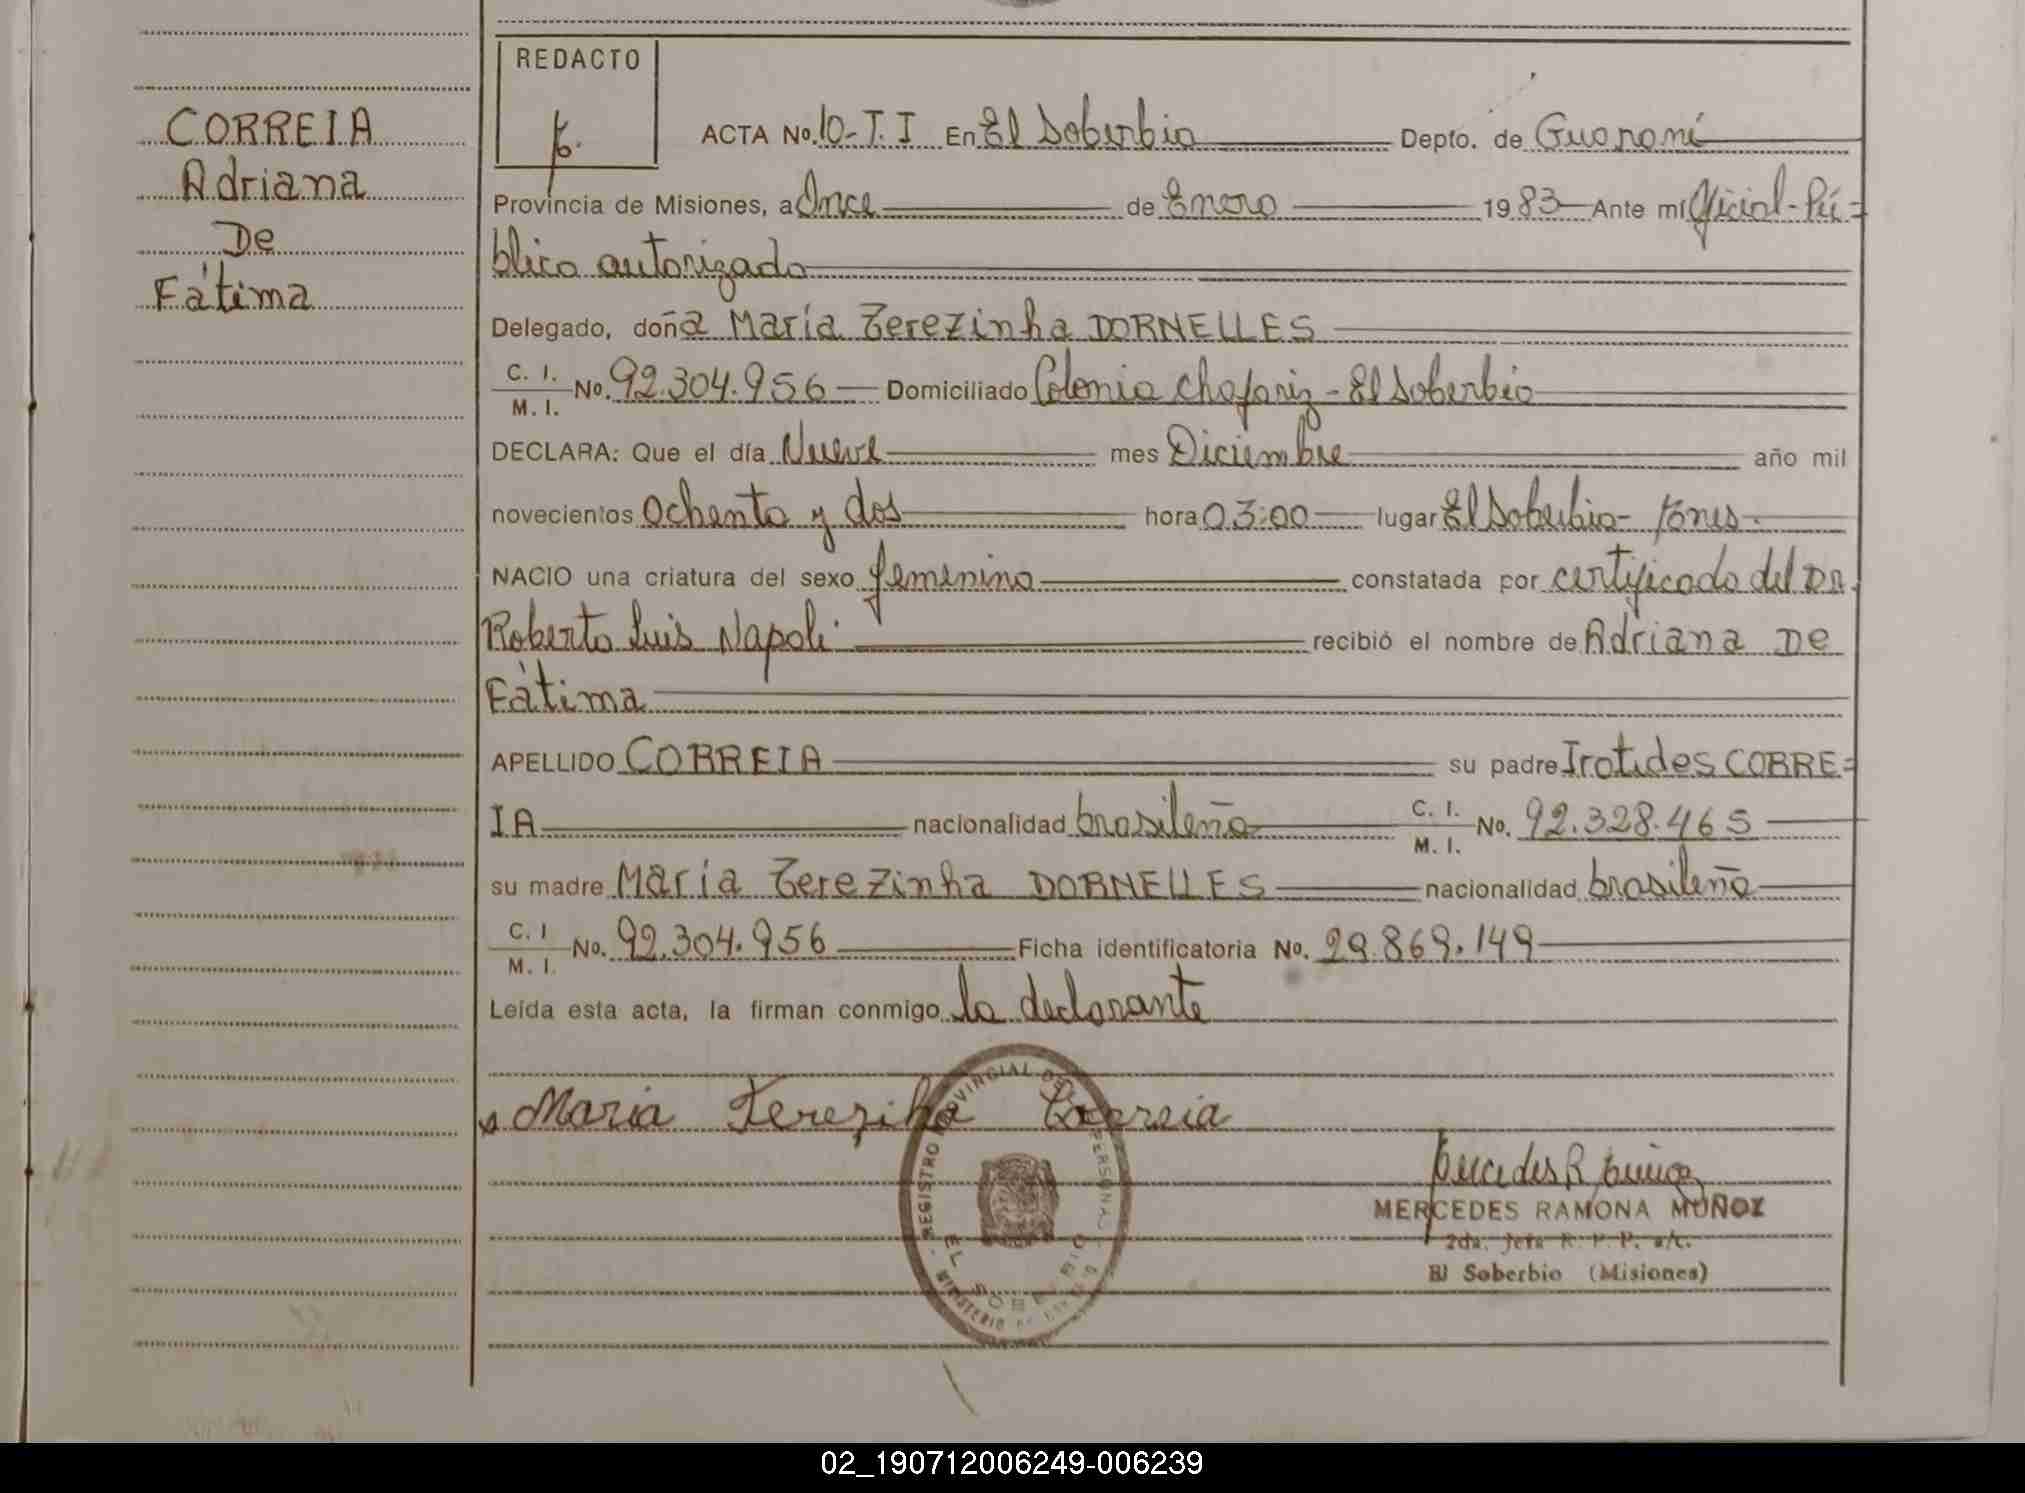 CORREIA
Adriana
De
Fátima
REDACTO
ACTA No. 10-T.I En El Soberbio Depto. de Guaraní
Provincia de Misiones, a Once de Enero 1983 Ante mí Oficial-Pú=
blico autorizado
Delegado, doña María Terezinha DORNELLES
C. I.
M. I. No. 92.304.956 Domiciliado Colonia Chafariz - El Soberbio
DECLARA: Que el día Nueve mes Diciembre año mil
novecientos ochenta y dos hora 03:00 lugar El Soberbio-
NACIO una criatura del sexo femenino constatada por certificado del DR.
Roberto Luis Napoli recibió el nombre de Adriana De
Fátima
APELLIDO CORREIA su padre Irotides CORRE=
IA nacionalidad brasileña C. I.
M. I. No. 92.328.465
su madre María Terezinha DORNELLES nacionalidad brasileña
C. I
M. I. No. 92.304.956 Ficha identificatoria No. 29.869.149
Leída esta acta, la firman conmigo la declarante
Maria Tereziha Correia
REGISTRO PROVINCIAL DE PERSONAS
EL SOBERBIO
MINISTERIO DE
MERCEDES RAMONA MUÑOZ
2da. Jefa R. P. P. a/c.
El Soberbio (Misiones)
02_190712006249-006239